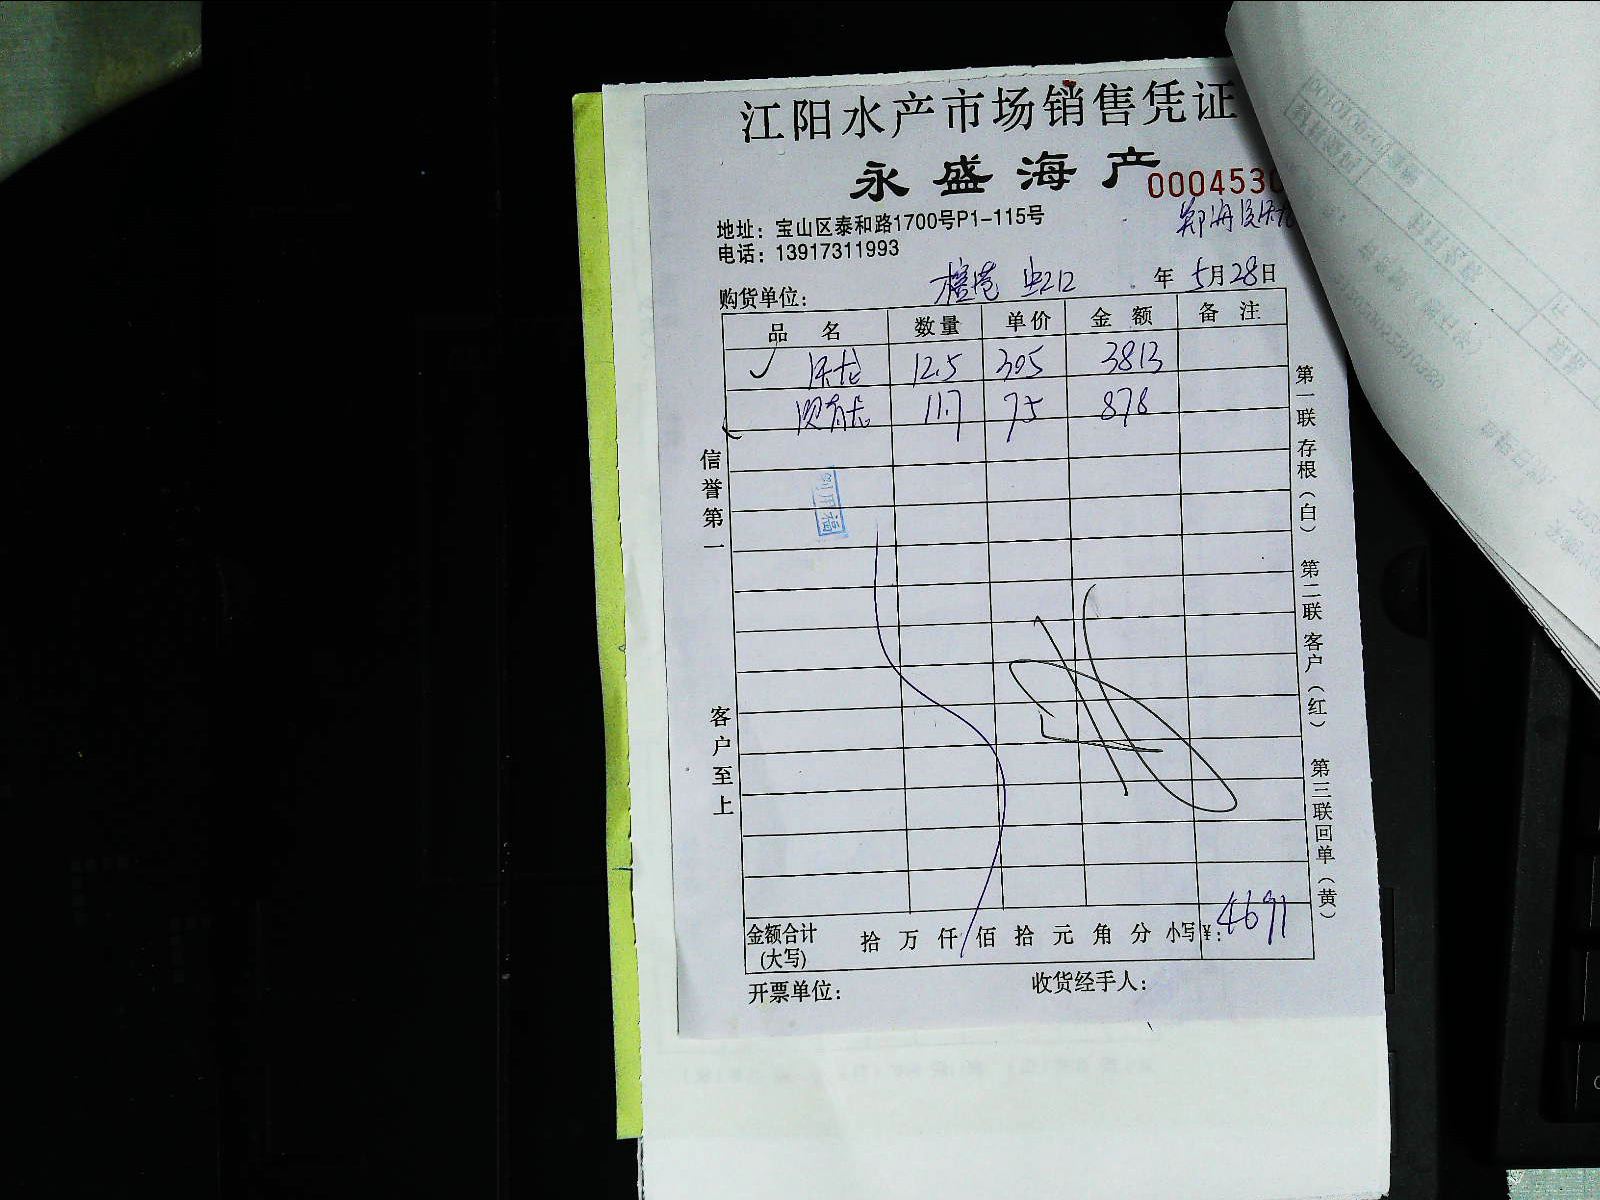 江阳水产市场销售凭证
永盛海产
000453
地址：宝山区泰和路1700号P1-115号
电话：13917311993
购货单位： 虹口 年 5月28日
品 名 数量 单价 金 额 备 注
12.5 305 3813
11.7 75 878
信誉第一
客户至上
第一联 存根（白） 第二联 客户（红） 第三联 回单（黄）
金额合计 拾 万 仟 佰 拾 元 角 分 小写¥：4691
(大写)
开票单位： 收货经手人：